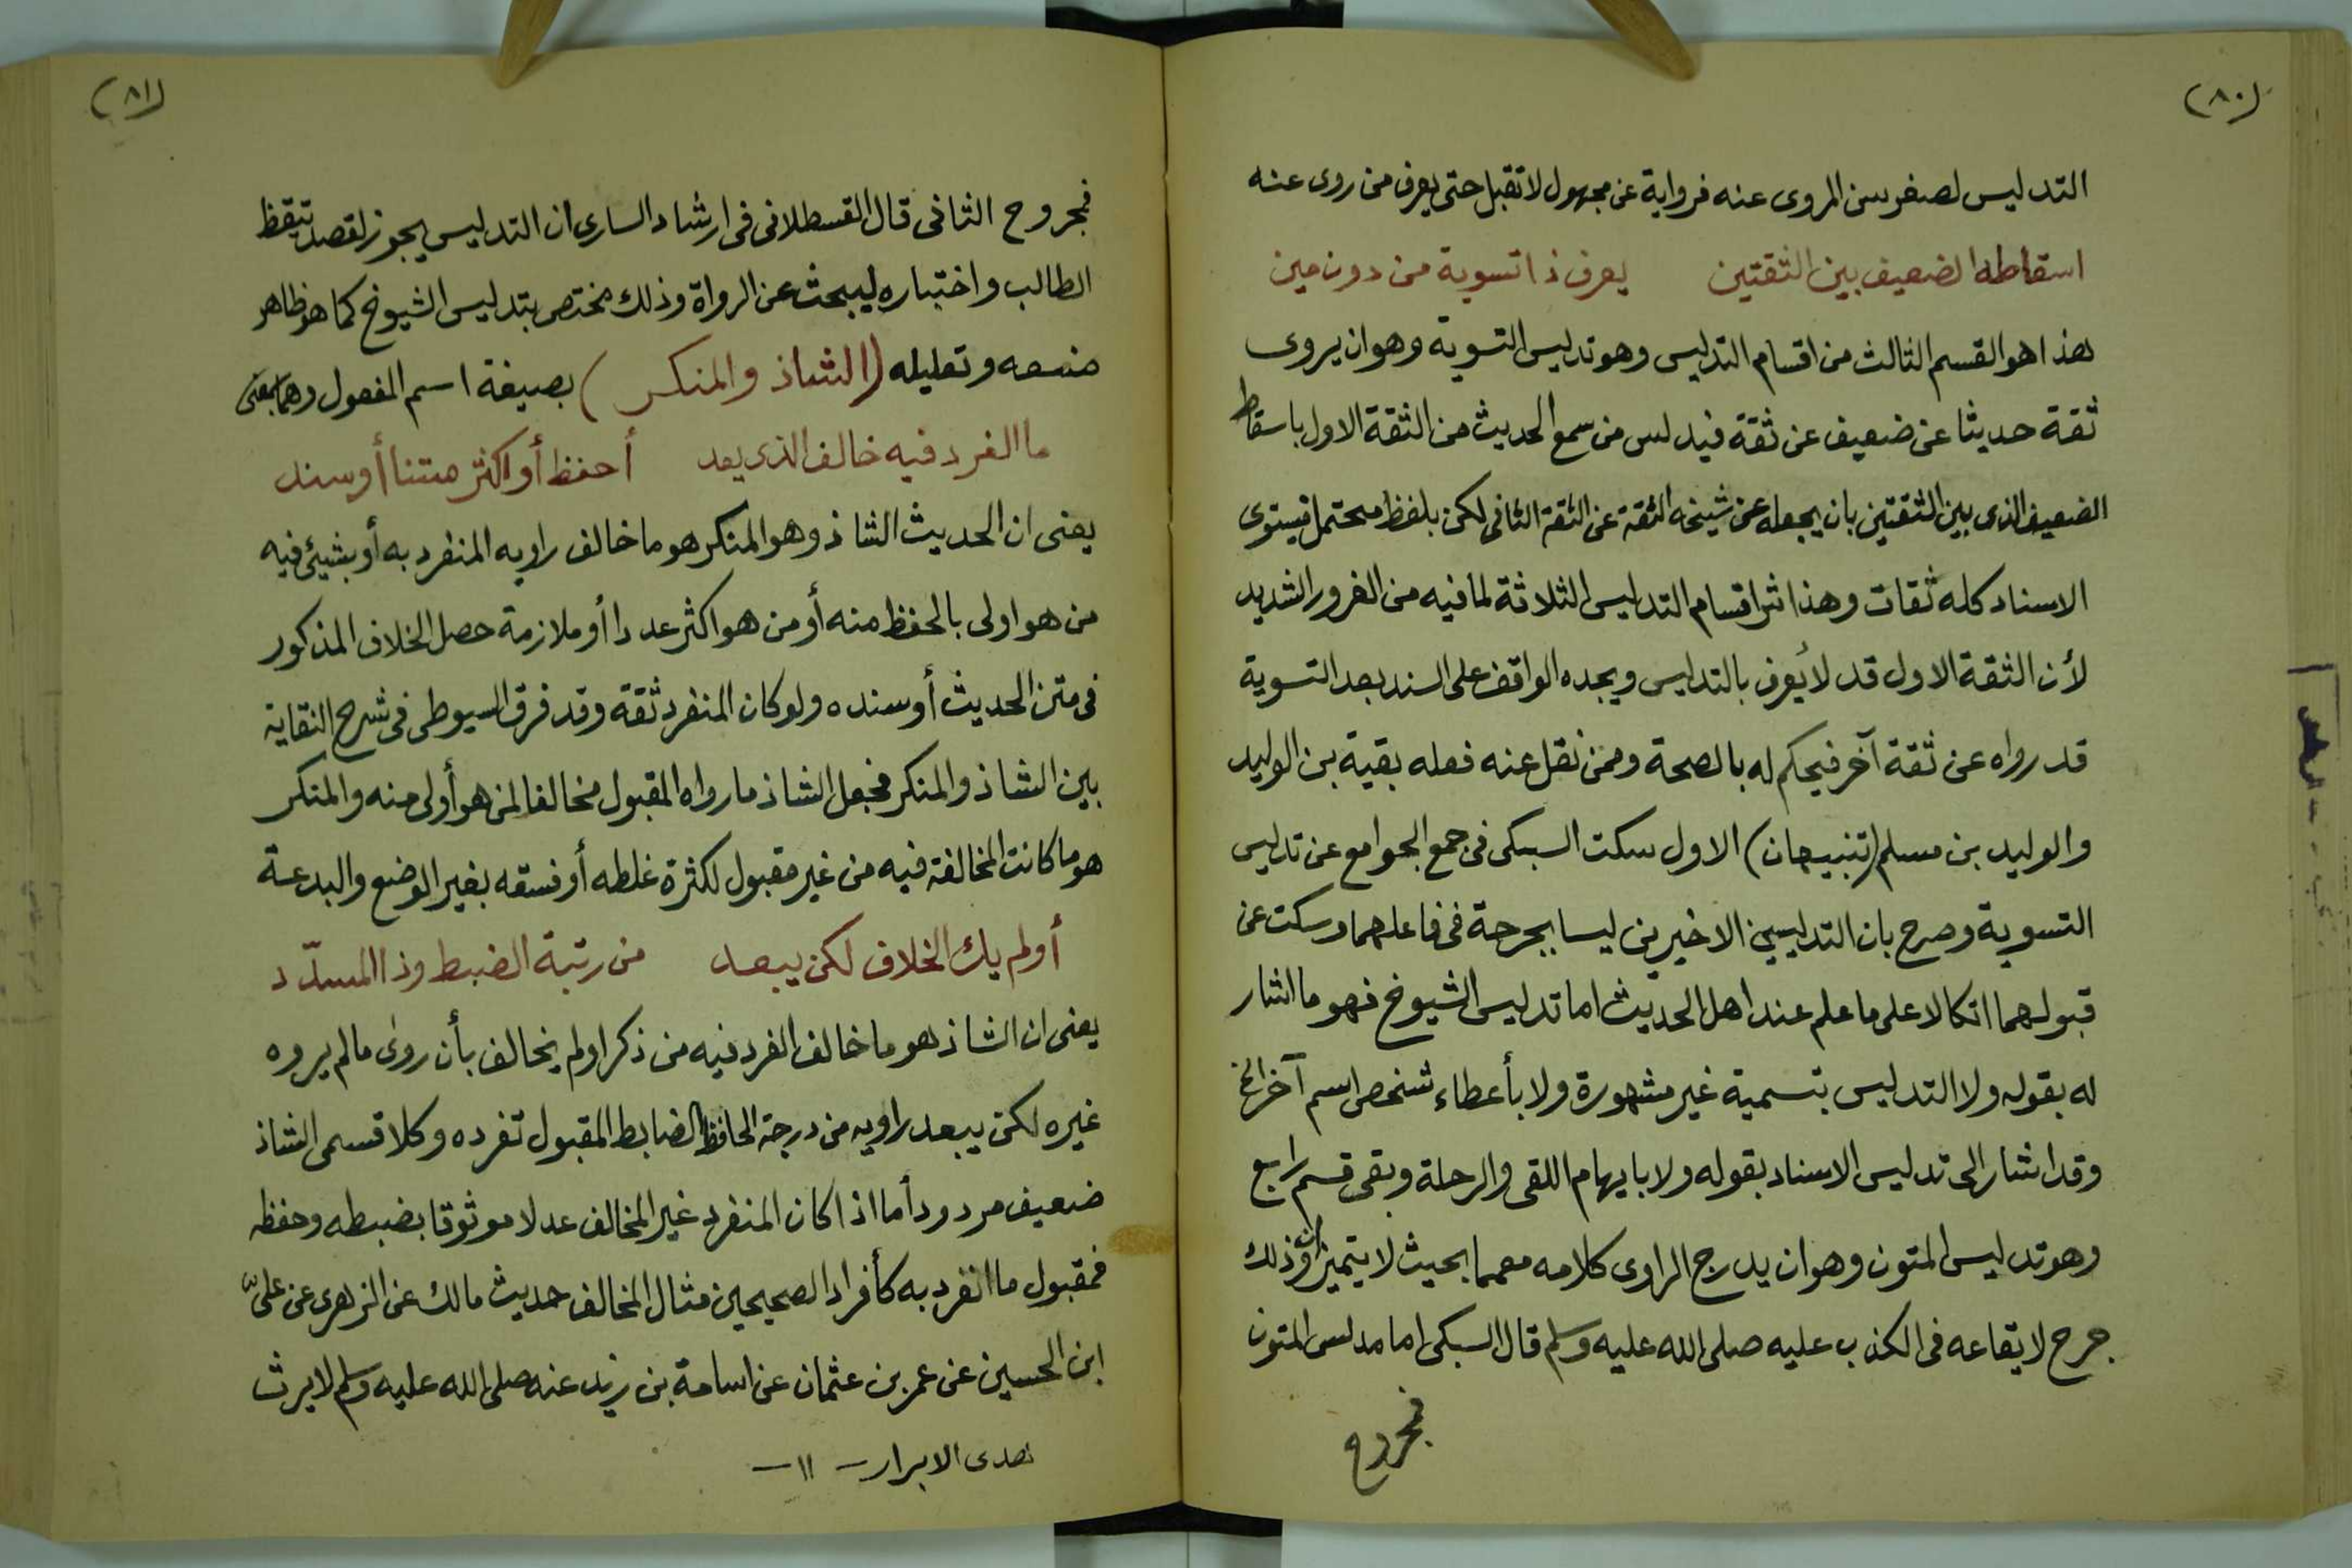 (٨٠)
التدليس لصغر سن المروى عنه فرواية عن مجهول لا تقبل حتى يعرف من روى عنه
اسقاطه الضعيف بين الثقتين يعرف ذا تسوية من دون مين
هذا هو القسم الثالث من اقسام التدليس وهو تدليس التسوية وهو ان يروى
ثقة حديثا عن ضعيف عن ثقة فيدلس من سمع الحديث من الثقة الاول باسقاط
الضعيف الذى بين الثقتين بان يجعله عن شيخه الثقة عن الثقة الثانى لكن بلفظ محتمل فيستوى
الاسناد كله ثقات وهذا شر اقسام التدليس الثلاثة لما فيه من الغرور الشديد
لأن الثقة الاول قد لا يُعرف بالتدليس ويجده الواقف على السند بعد التسوية
قد رواه عن ثقة آخر فيحكم له بالصحة وممن نقل عنه فعله بقية بن الوليد
والوليد بن مسلم (تنبيهان) الاول سكت السبكى فى جمع الجوامع عن تدليس
التسوية وصرح بان التدليسين الاخيرين ليسا بجرحة فى فاعلهما وسكت عن
قبولهما اتكالا على ما علم عند اهل الحديث اما تدليس الشيوخ فهو ما اشار
له بقوله ولا التدليس بتسمية غير مشهورة ولا بأعطاء شخص اسم آخر الخ
وقد اشار الى تدليس الاسناد بقوله ولا بايهام اللقى والرحلة وبقى قسم رابع
وهو تدليس المتون وهو ان يدرج الراوى كلامه معهما بحيث لا يتميزان وذلك
جرح لايقاعه فى الكذب عليه صلى الله عليه وسلم قال السبكى اما مدلس المتون
فمجروح
(٨١)
فمجروح الثانى قال القسطلانى فى ارشاد السارى ان التدليس يجوز لقصد تيقظ
الطالب واختباره ليبحث عن الرواة وذلك مختص بتدليس الشيوخ كما هو ظاهر
صنعه وتعليله (الشاذ والمنكر) بصيغة اسم المفعول وهما بمعنى
ما الفرد فيه خالف الذى يعد أحفظ أو اكثر متنا أو سند
يعنى ان الحديث الشاذ وهو المنكر هو ما خالف راويه المنفرد به أو بشيئ فيه
من هو اولى بالحفظ منه أو من هو اكثر عددا أو ملازمة حصل الخلاف المذكور
فى متن الحديث أو سنده ولو كان المنفرد ثقة وقد فرق السيوطى فى شرح النقاية
بين الشاذ والمنكر فجعل الشاذ ما رواه المقبول مخالفا لمن هو أولى منه والمنكر
هو ما كانت المخالفة فيه من غير مقبول لكثرة غلطه أو فسقه بغير الوضع والبدعة
أو لم يك الخلاف لكن يبعد من رتبة الضبط وذا المسدّد
يعنى ان الشاذ هو ما خالف الفرد فيه من ذكر اولم يخالف بأن روى مالم يروه
غيره لكن يبعد راويه من درجة الحافظ الضابط المقبول تفرده وكلا قسمى الشاذ
ضعيف مردود أما اذا كان المنفرد غير المخالف عدلا موثوقا بضبطه وحفظه
فمقبول ما انفرد به كأفراد الصحيحين مثال المخالف حديث مالك عن الزهرى عن علىّ
ابن الحسين عن عمر بن عثمان عن اسامة بن زيد عنه صلى الله عليه وسلم لا يرث
هدى الابرار - ١١ -